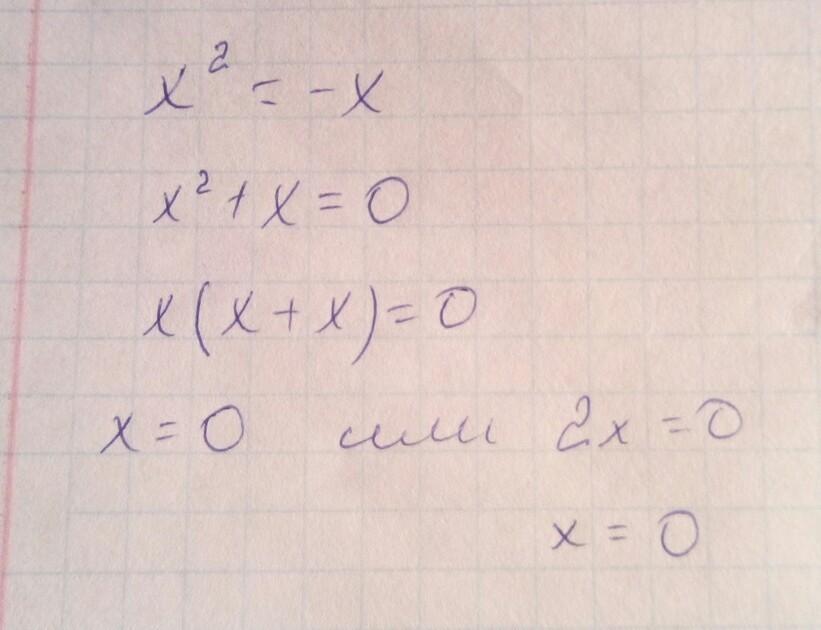 x² = -x
x² + x = 0
x(x + x) = 0
x = 0 или 2x = 0
x = 0